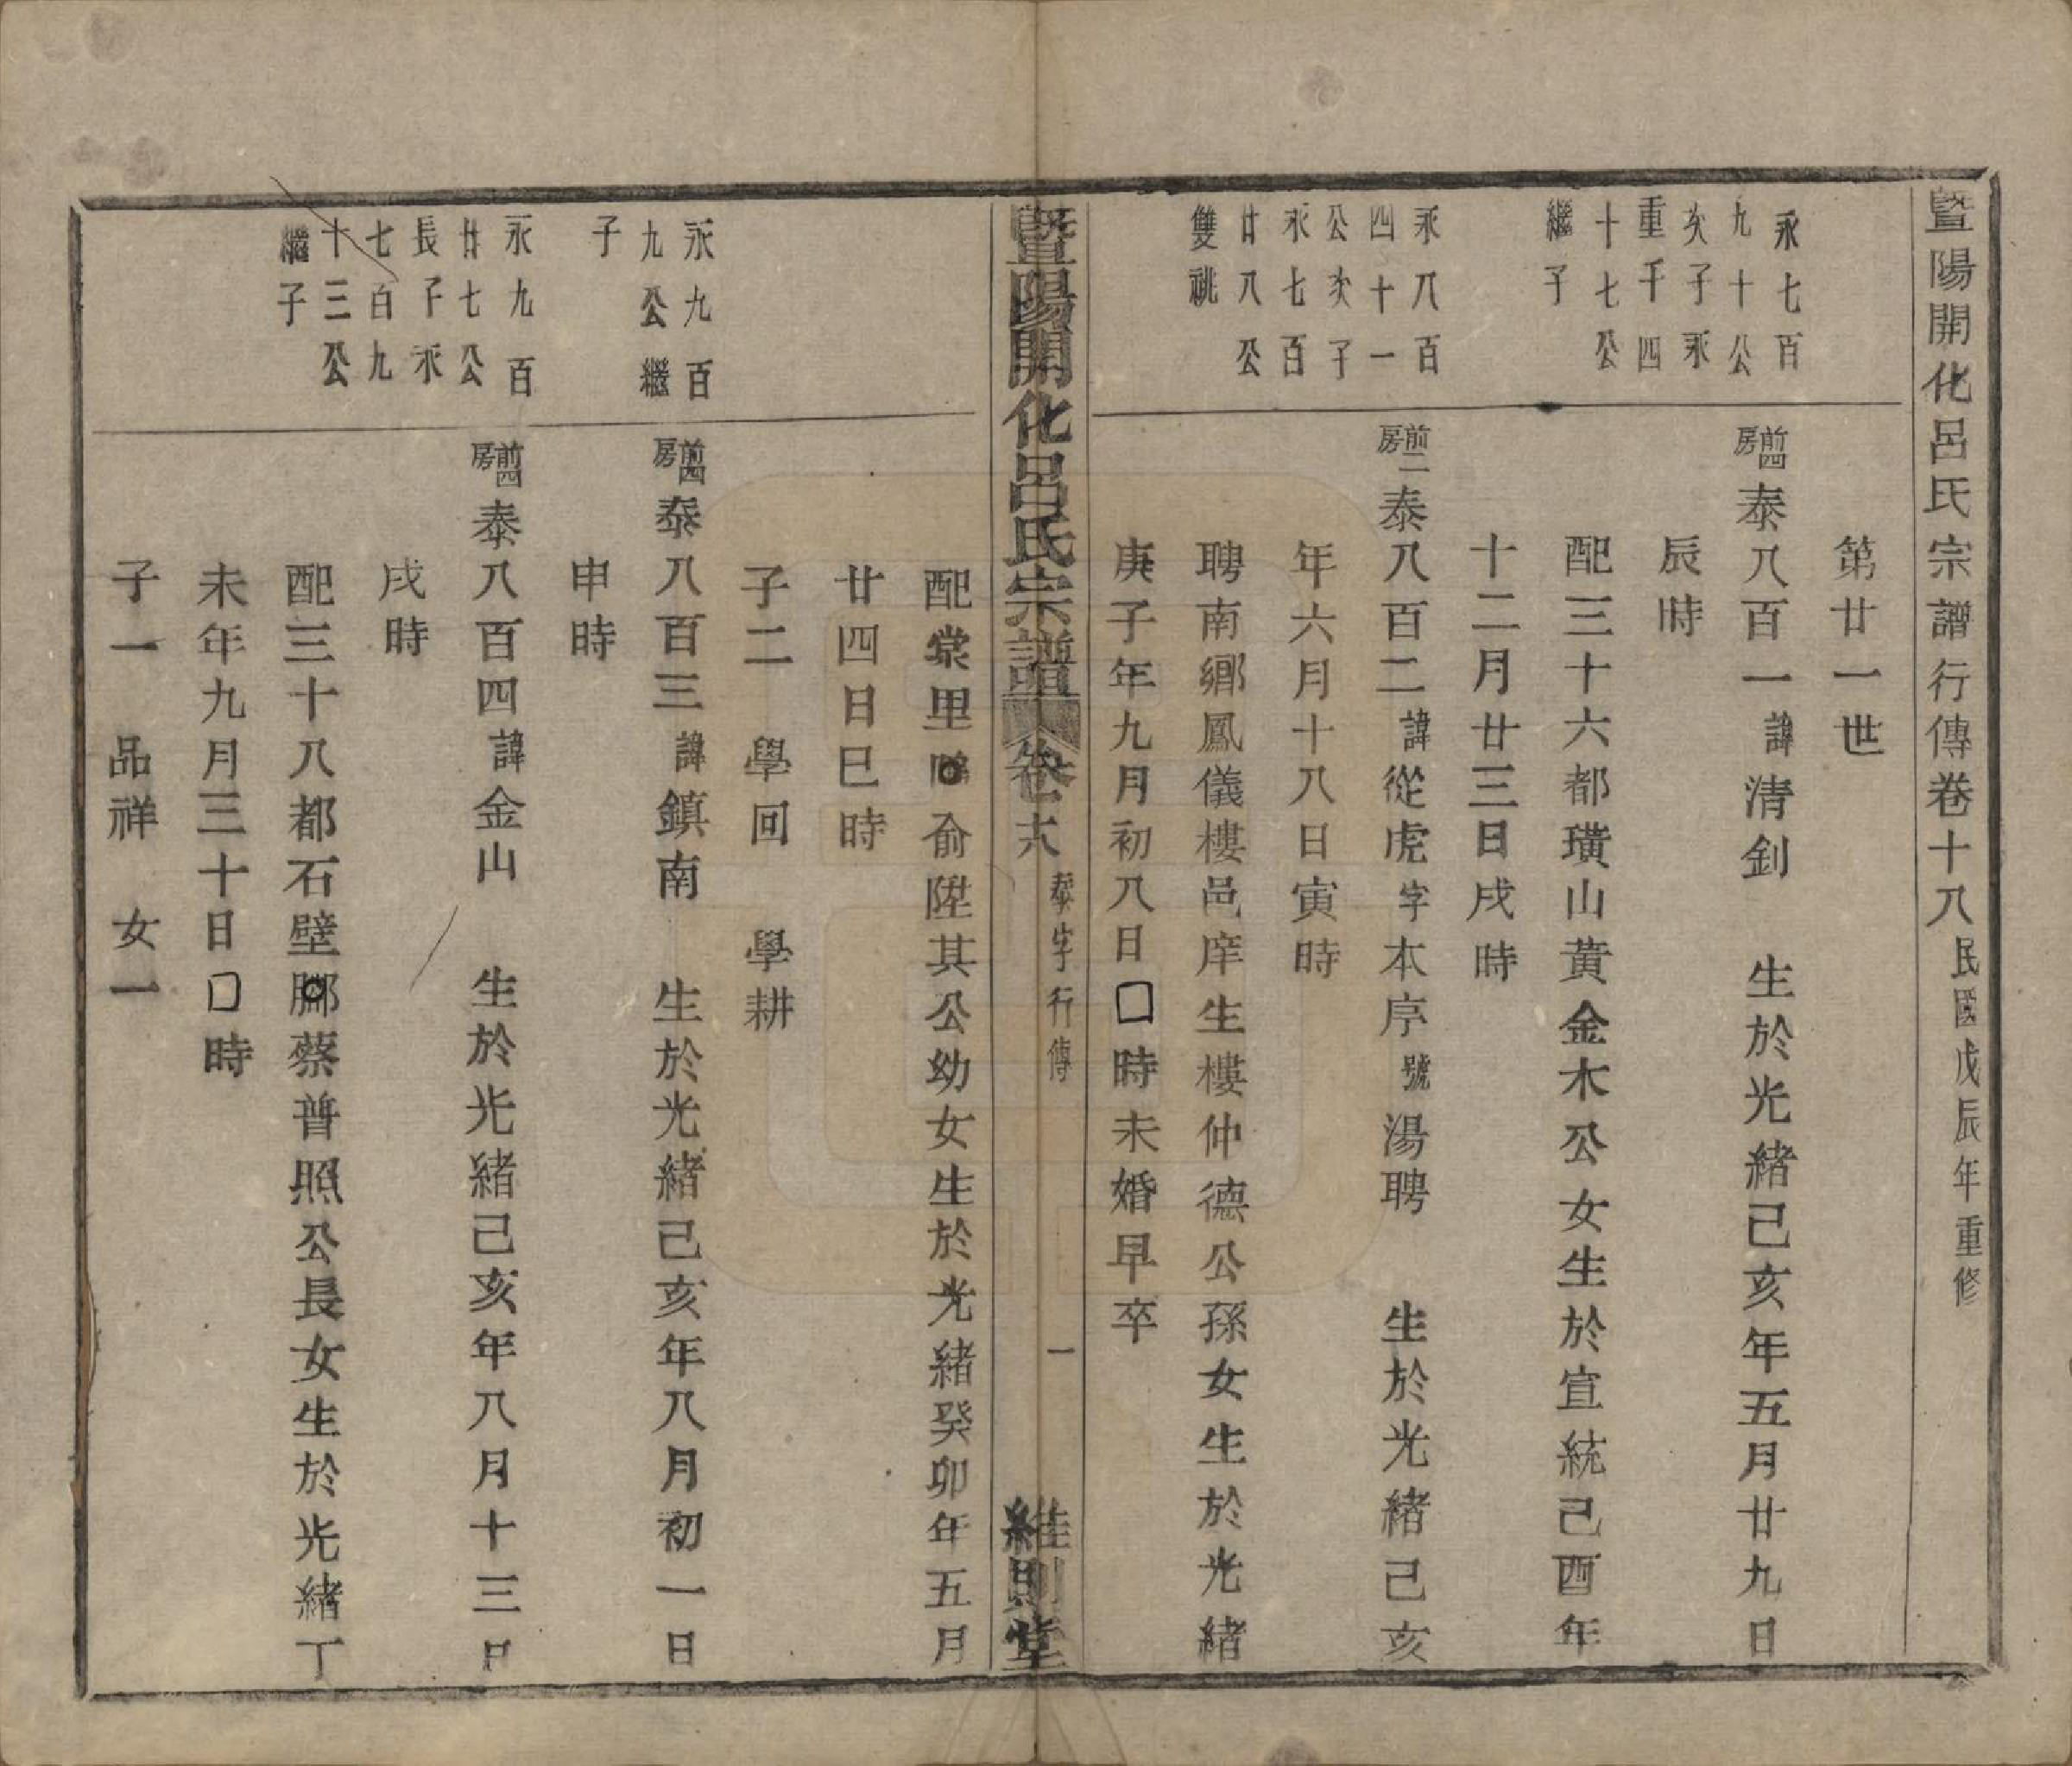 暨陽開化呂氏宗譜行傳卷十八民國戊辰年重修
第廿一世
永七百
九十公
次子永
重千四
十七公
繼子
前四房泰八百一諱清釗　生於光緒己亥年五月廿九日
辰時
配三十六都璜山黃金木公女生於宣統己酉年
十二月廿三日戌時
永八百
四十一
公次子
永七百
廿八公
雙祧
前二房泰八百二諱從虎字本序號湯聘　生於光緒己亥
年六月十八日寅時
聘南鄉鳳儀樓邑庠生樓仲德公孫女生於光緒
庚子年九月初八日□時未婚早卒
暨陽開化呂氏宗譜　卷十八　泰字行傳　一　維則堂
配棠里　俞陞其公幼女生於光緒癸卯年五月
廿四日巳時
子二　學回　學耕
永九百
九公繼
子
前四房泰八百三諱鎮南　生於光緒己亥年八月初一日
申時
永九百
廿七公
長子永
七百九
十三公
繼子
前四房泰八百四諱金山　生於光緒己亥年八月十三日
戌時
配三十八都石壁腳蔡普照公長女生於光緒丁
未年九月三十日□時
子一　品祥　女一